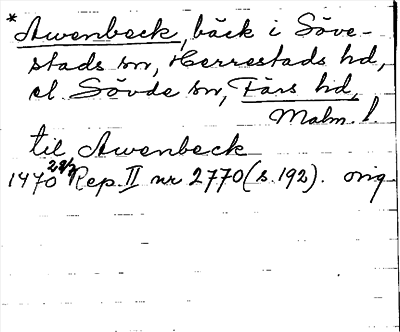 * Awenbeck, bäck i Söve-
stads sn, Herrestads hd,
el. Sövde sn, Färs hd,
Malm. l.
til Awenbeck
1470 28/7 Rep. II nr 2770 (s. 192). orig